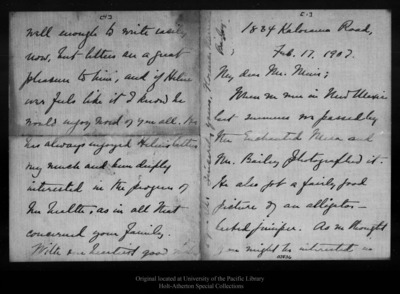 1834 Kalorama Road,
Feb. 17, 1907.
My dear Mr. Muir:
When we were in New Mexico
last summer we passed by
the Enchanted Mesa and
Mr. Bailey photographed it.
He also got a fairly good
picture of an alligator-
barked juniper. As we thought
you might be interested in
well enough to write easily
now, but letters are a great
pleasure to him, and if Helen
ever feels like it I know he
would enjoy word of you all. He
has always enjoyed Helen's letters
very much and been deeply
interested in the progress of
her health, as in all that
concerned your family.
With our heartiest good
Original located at University of the Pacific Library
Holt-Atherton Special Collections